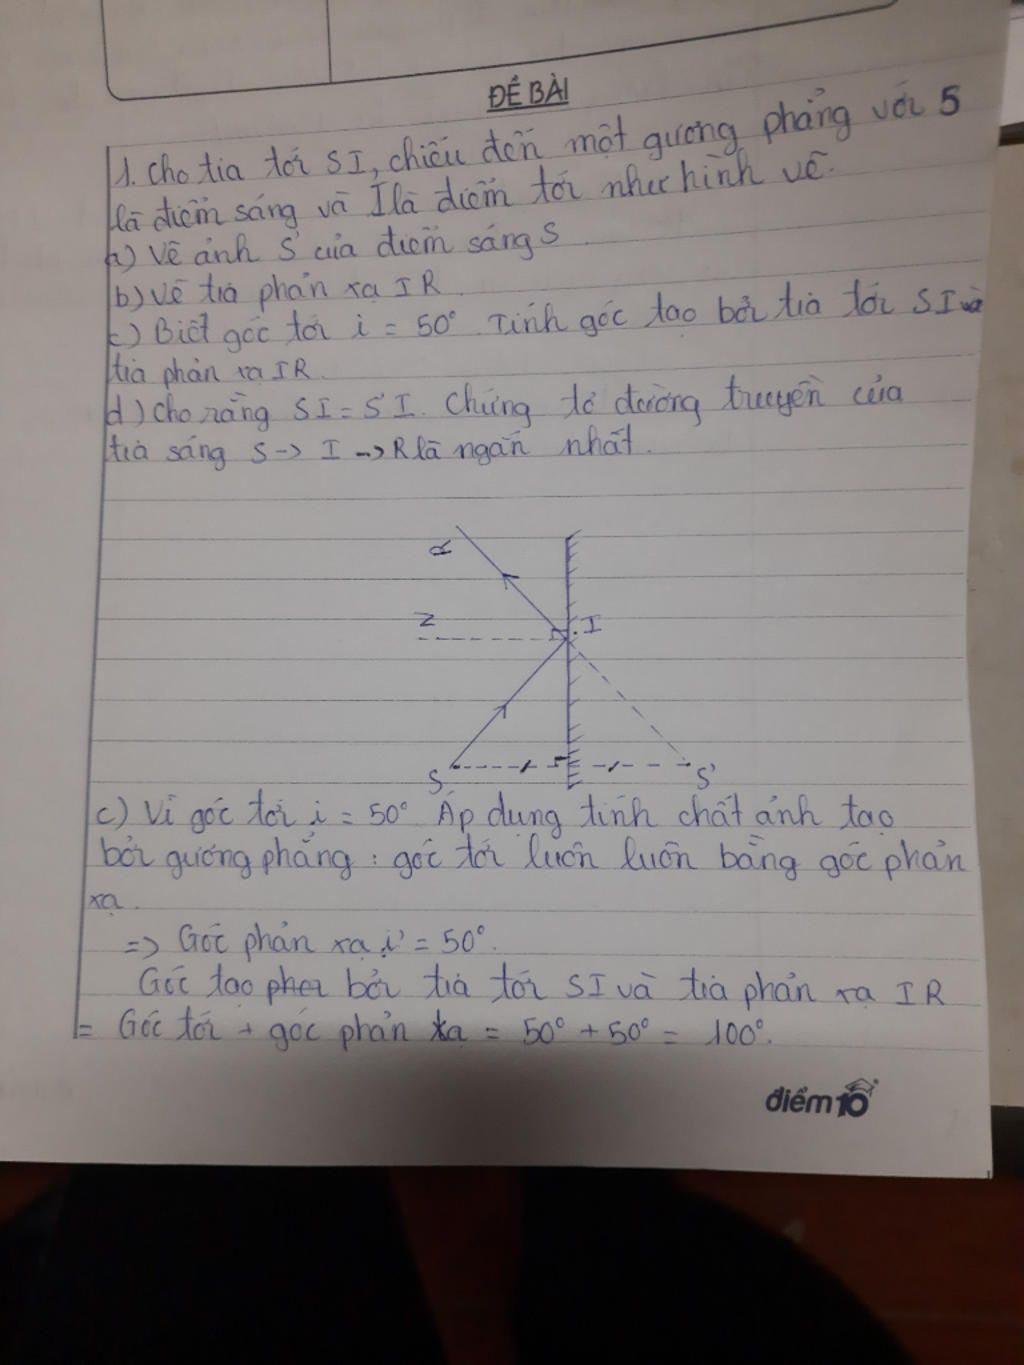 ĐỀ BÀI
1. Cho tia tới SI, chiếu đến một gương phẳng với S
là điểm sáng và I là điểm tới như hình vẽ.
a) Vẽ ảnh S' của điểm sáng S
b) Vẽ tia phản xạ IR
c) Biết góc tới i = 50°. Tính góc tạo bởi tia tới SI và
tia phản xạ IR
d) Cho rằng SI = S'I. Chứng tỏ đường truyền của
tia sáng S -> I -> R là ngắn nhất.
R
N
I
S
S'
c) Vì góc tới i = 50° Áp dụng tính chất ảnh tạo
bởi gương phẳng : góc tới luôn luôn bằng góc phản
xạ.
=> Góc phản xạ i' = 50°.
Góc tạo bởi tia tới SI và tia phản xạ IR
= Góc tới + góc phản xạ = 50° + 50° = 100°.
điểm 10